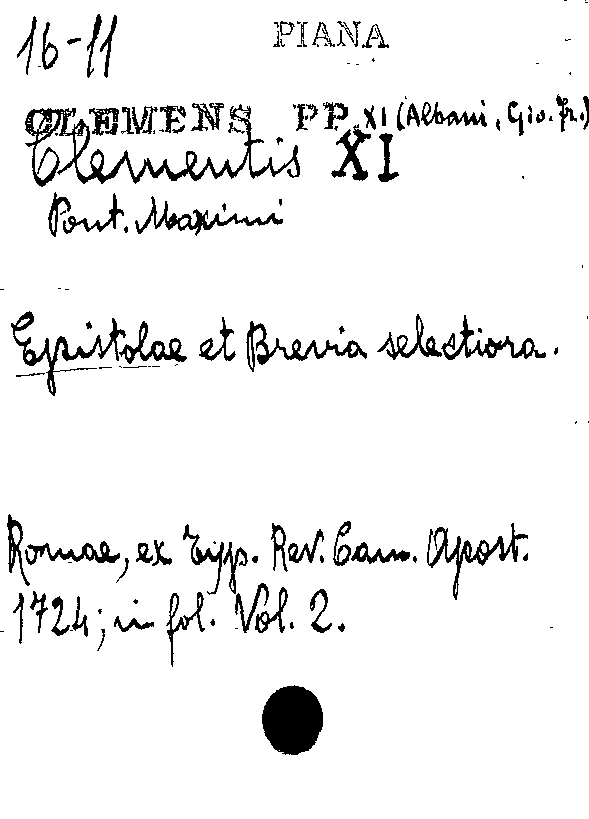 16-11
PIANA
CLEMENS PP. XI (Albani, Gio. Fr.)
Clementis XI
Pont. Maximi
Epistolae et Brevia selectiora.
Romae, ex Typ. Rev. Cam. Apost.
1724; in fol. Vol. 2.